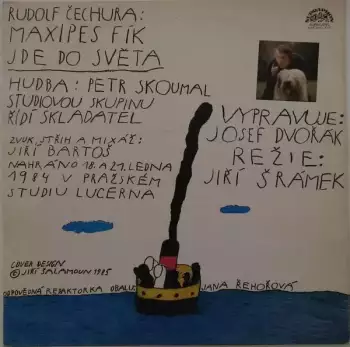 RUDOLF ČECHURA:
MAXIPES FÍK
JDE DO SVĚTA
HUDBA: PETR SKOUMAL
STUDIOVOU SKUPINU
ŘÍDÍ SKLADATEL
ZVUK, STŘIH A MIXÁŽ:
JIŘÍ BARTOŠ
NAHRÁNO 18. A 21. LEDNA
1984 V PRAŽSKÉM
STUDIU LUCERNA
VYPRAVUJE:
JOSEF DVOŘÁK
REŽIE:
JIŘÍ ŠRÁMEK
COVER DESIGN
© JIŘÍ ŠALAMOUN 1985
ODPOVĚDNÁ REDAKTORKA OBALU JANA ŘEHOŘOVÁ